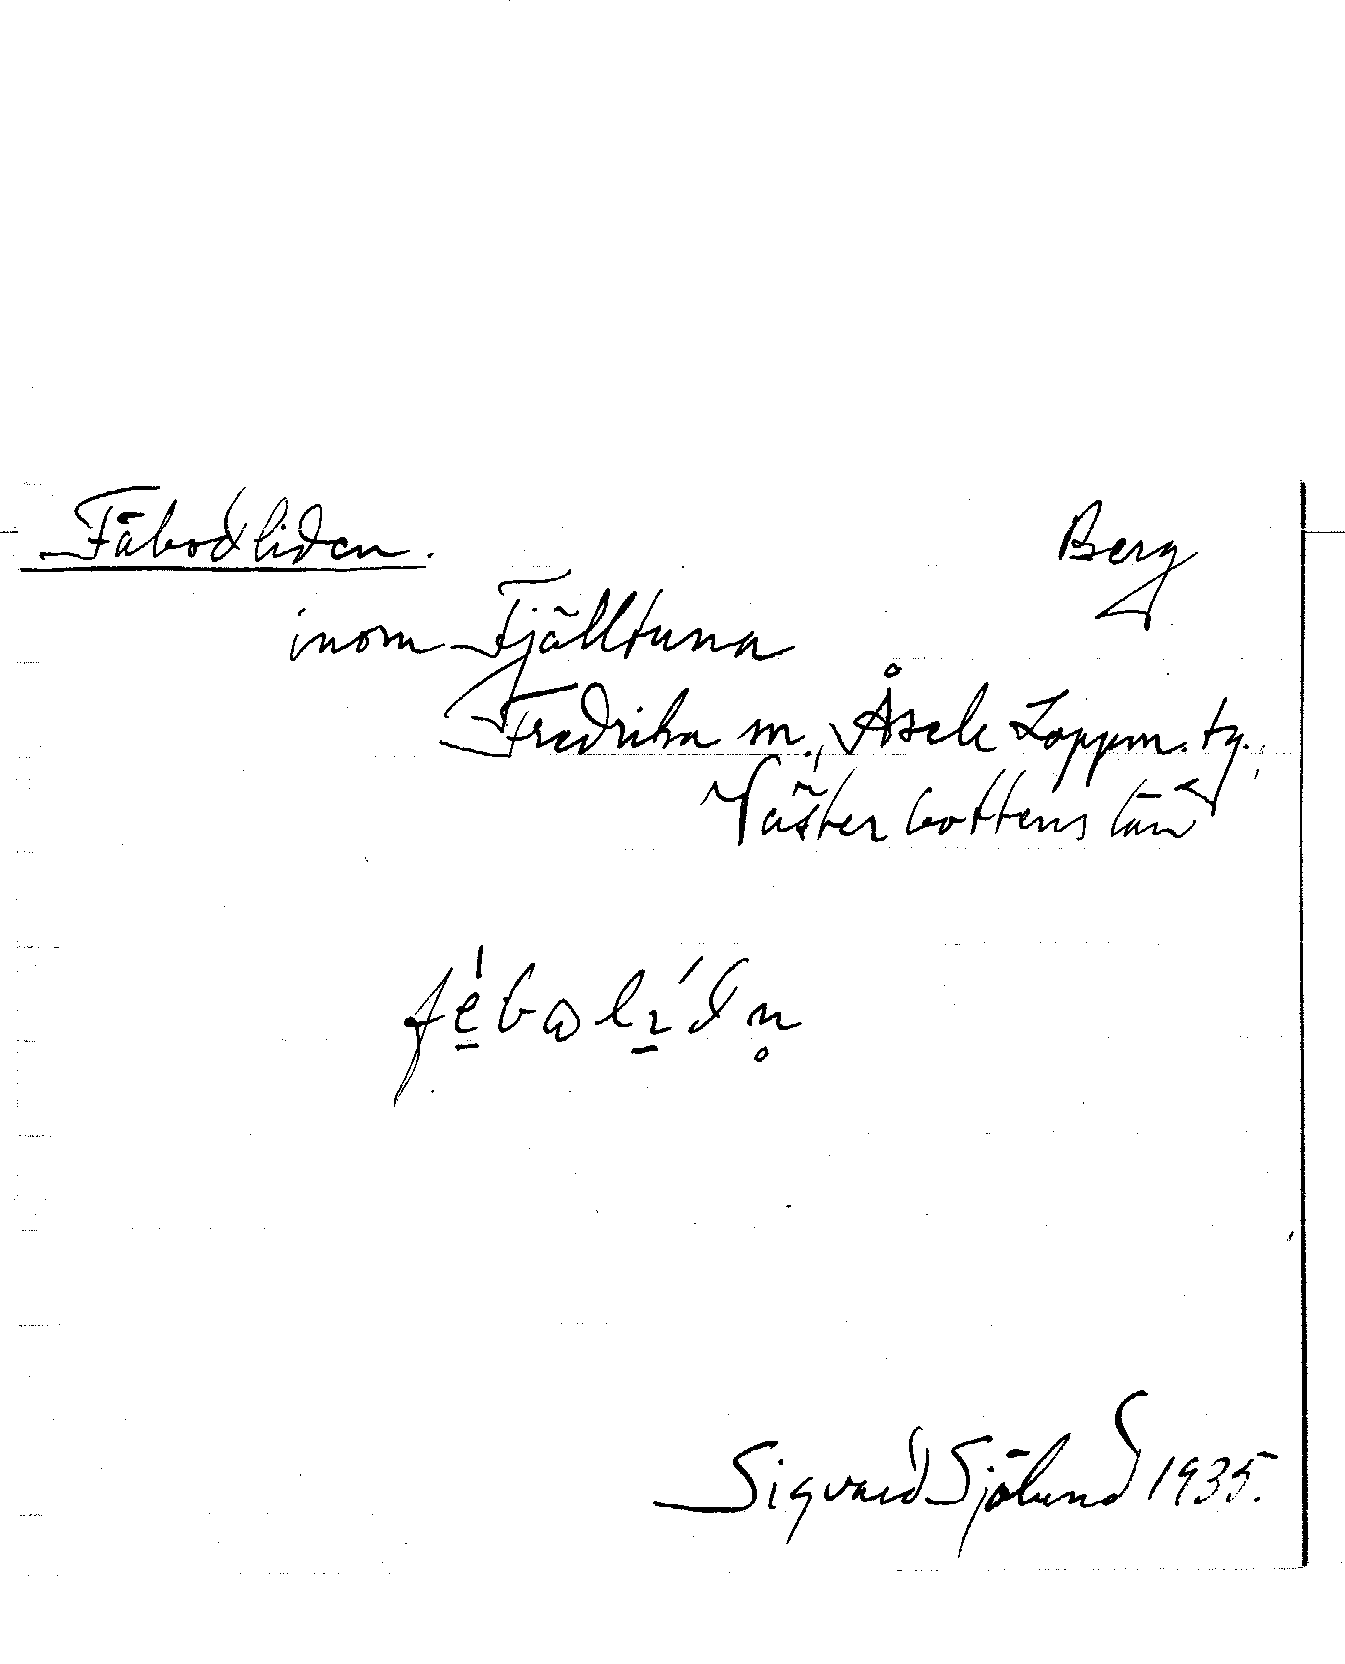 Fäbodliden. Berg
inom Fjälltuna
Fredrika sn., Åsele Lappm. tg.,
Västerbottens län
fe̱´bωlı̱´dn̥
Sigvard Sjölund 1935.